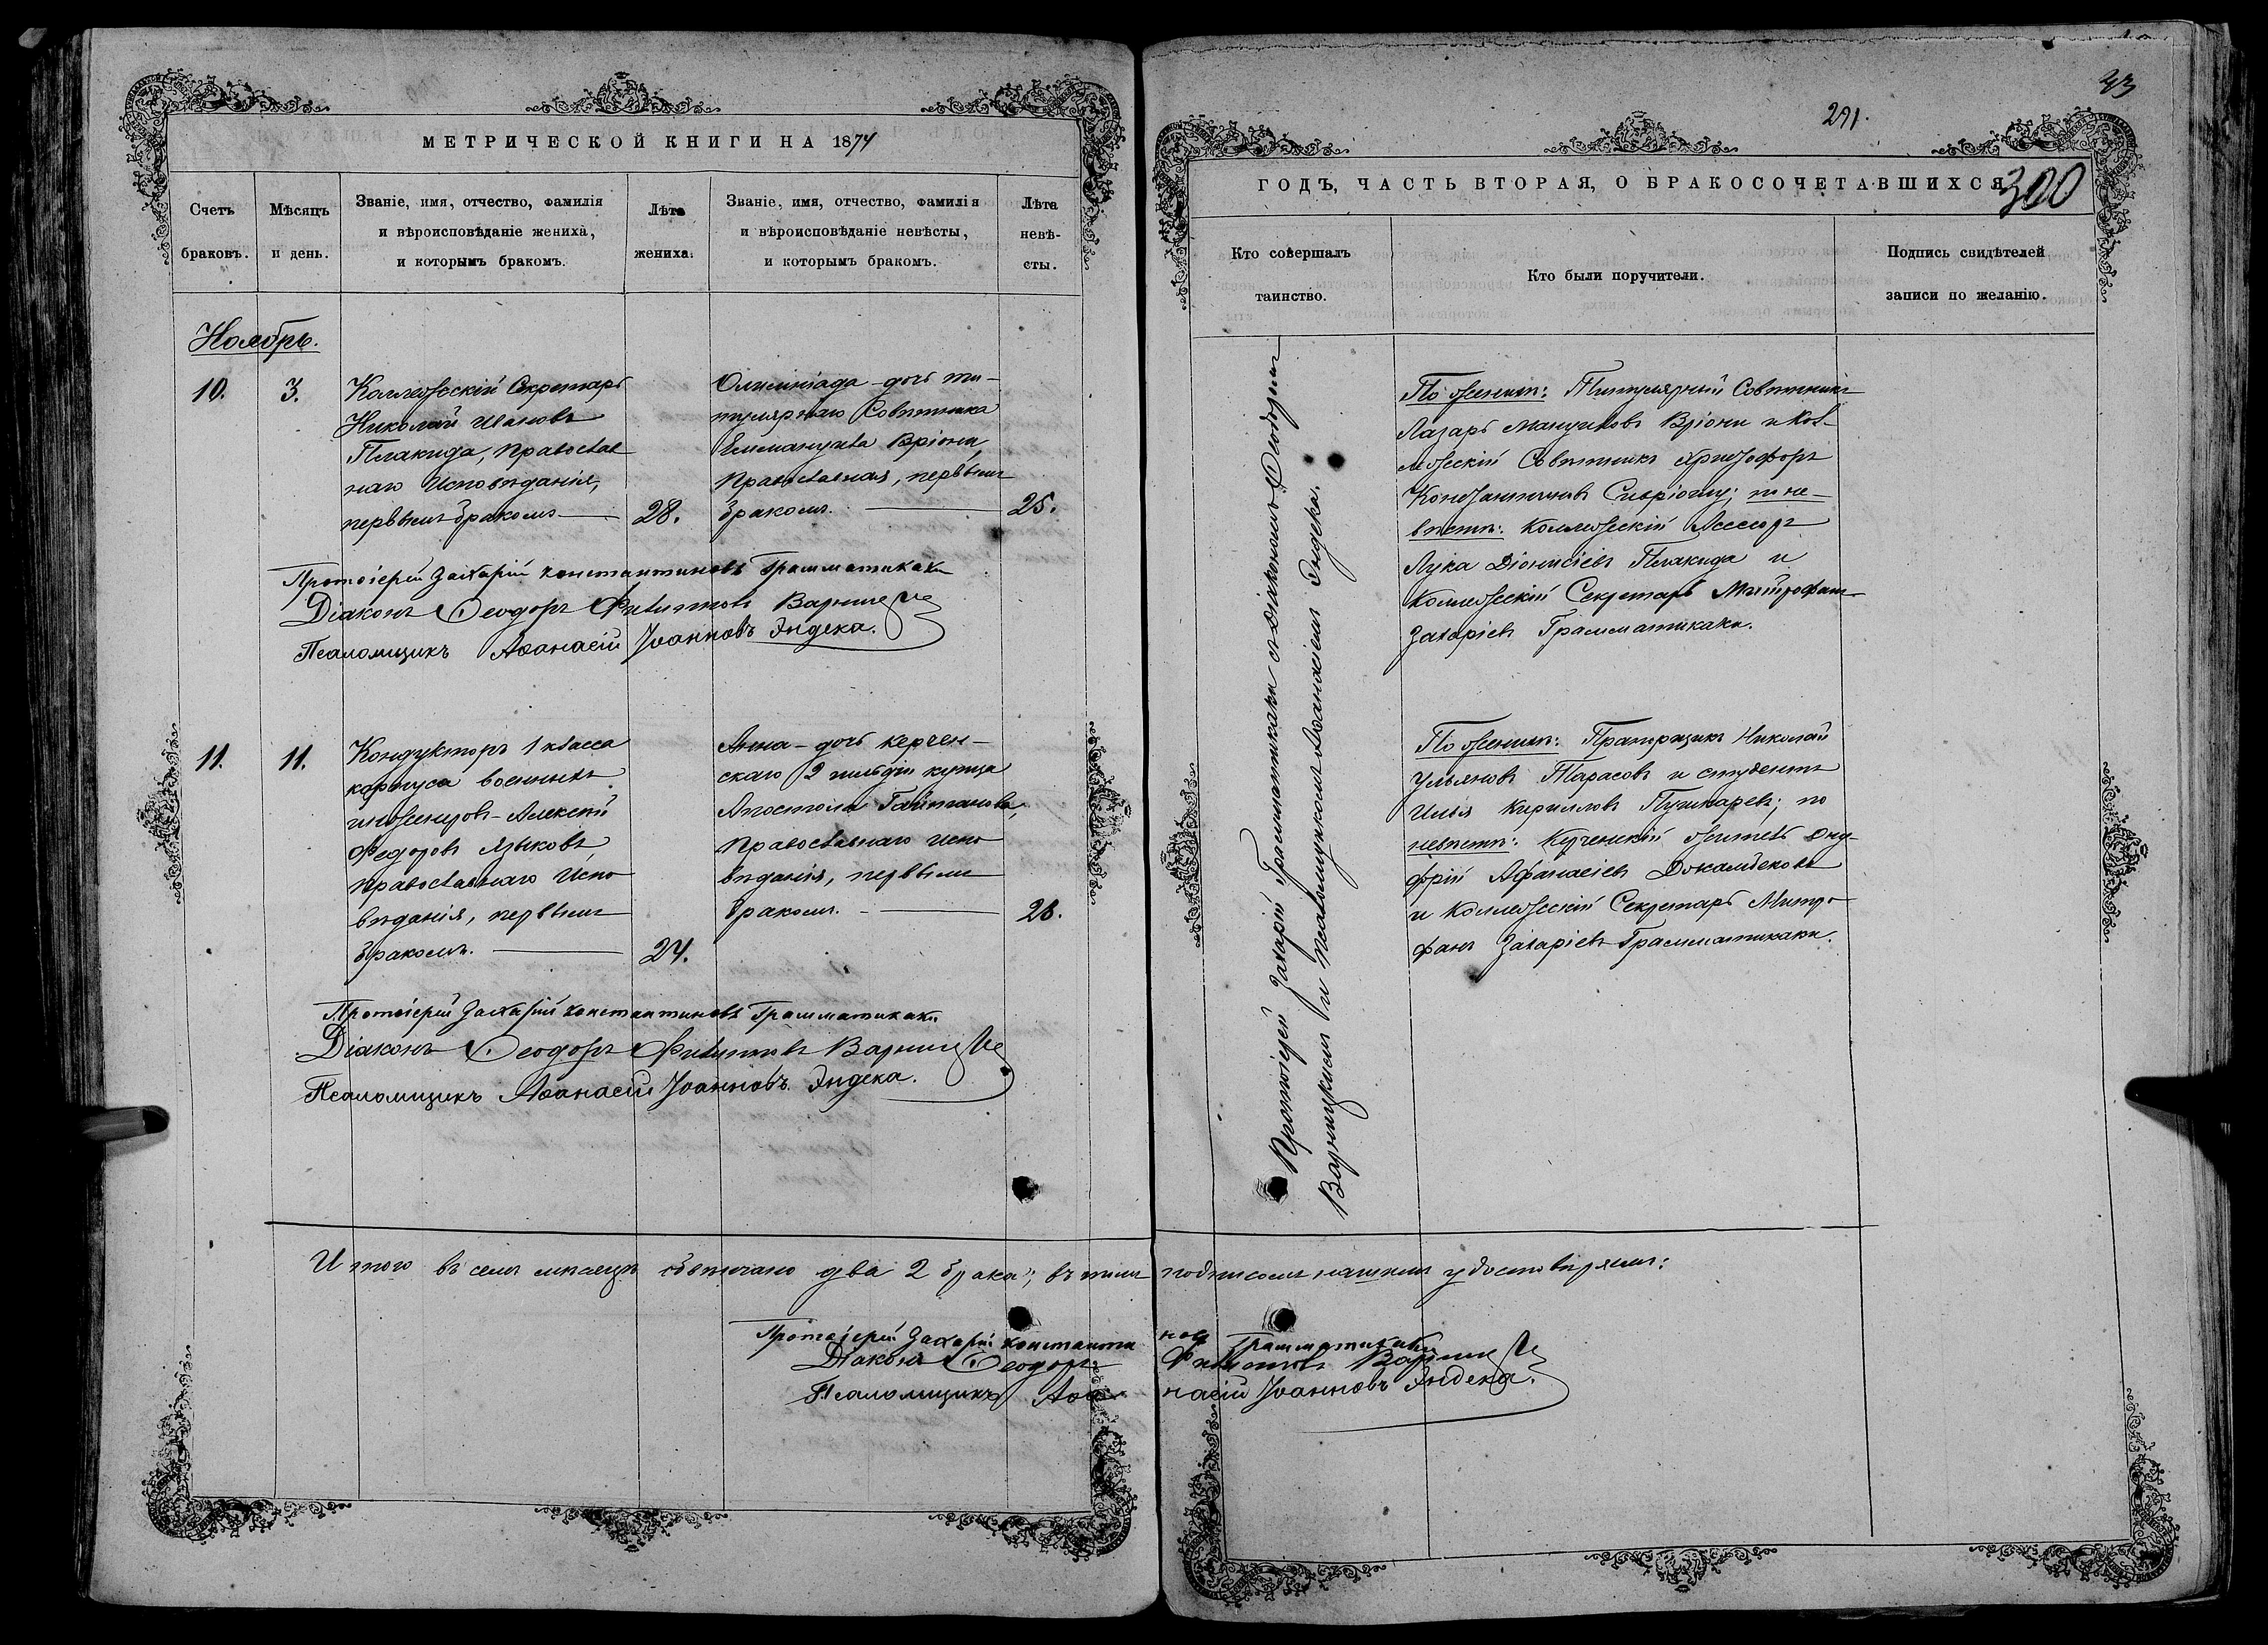 МЕТРИЧЕСКОЙ КНИГИ НА 1874
Счетъ браковъ.
Мѣсяцъ и день.
Званіе, имя, отчество, фамилія
и вѣроисповѣданіе жениха,
и которымъ бракомъ.
Лѣта жениха.
Званіе, имя, отчество, фамилія
и вѣроисповѣданіе невѣсты,
и которымъ бракомъ.
Лѣта невѣ-
сты.
Ноябрь.
10.
3.
Коллежскій Секретарь
Николай Ивановъ
Плакида, православ
наго исповѣданія,
первымъ бракомъ
28.
Олимпіада - дочь ти-
тулярнаго Совѣтника
Еммануила Вріони,
православная, первымъ
бракомъ.
25.
Протоіерей Захарій Константиновъ Грамматикаки
Діаконъ Ѳеодоръ Филипповъ
Псаломщикъ Аѳанасій Іоанновъ Эндека.
11.
11.
Кондукторъ 1 класса
корпуса военныхъ
инженеровъ - Алексѣй
Федоровъ Языковъ,
православнаго испо
вѣданія, первымъ
бракомъ.
24.
Анна - дочь керчен-
скаго 2 гильдіи купца
Апостола Гайтанова,
православнаго испо
вѣданія, первымъ
бракомъ.
26.
Протоіерей Захарій Константиновъ Грамматикаки
Діаконъ Ѳеодоръ Филипповъ
Псаломщикъ Аѳанасій Іоанновъ Эндека.
33
291.
300
ГОДЪ, ЧАСТЬ ВТОРАЯ, О БРАКОСОЧЕТАВШИХСЯ
Кто совершалъ
таинство.
Кто были поручители.
Подпись свидѣтелей
записи по желанію.
Протоіерей Захарій Грамматикаки съ діакономъ Ѳеодоромъ
Варницкимъ и псаломщикомъ Аѳанасіемъ Эндека.
По женихѣ: Титулярный Совѣтникъ
Лазарь Мануиловъ Вріони и Кол-
лежскій Совѣтникъ Христофоръ
Константиновъ по не-
вѣстѣ: Коллежскій Ассесоръ
Лука Діонисіевъ Плакида и
Коллежскій Секретарь Митрофанъ
Захаріевъ Грамматикаки.
По женихѣ: Прапорщикъ Николай
Ульяновъ Тарасовъ и студентъ
Илья Кирилловъ Пушкаревъ; по
невѣстѣ: Керченскій житель Ону-
фрій Афанасіевъ
и Коллежскій Секретарь Митро-
фанъ Захаріевъ Грамматикаки.
Итого въ семъ мѣсяцѣ обвѣнчано два 2 брака; въ томъ подписомъ нашимъ удостовѣряемъ:
Протоіерей Захарій Константиновъ Грамматикаки
Діаконъ Ѳеодоръ Филипповъ
Псаломщикъ Аѳанасій Іоанновъ Эндека.